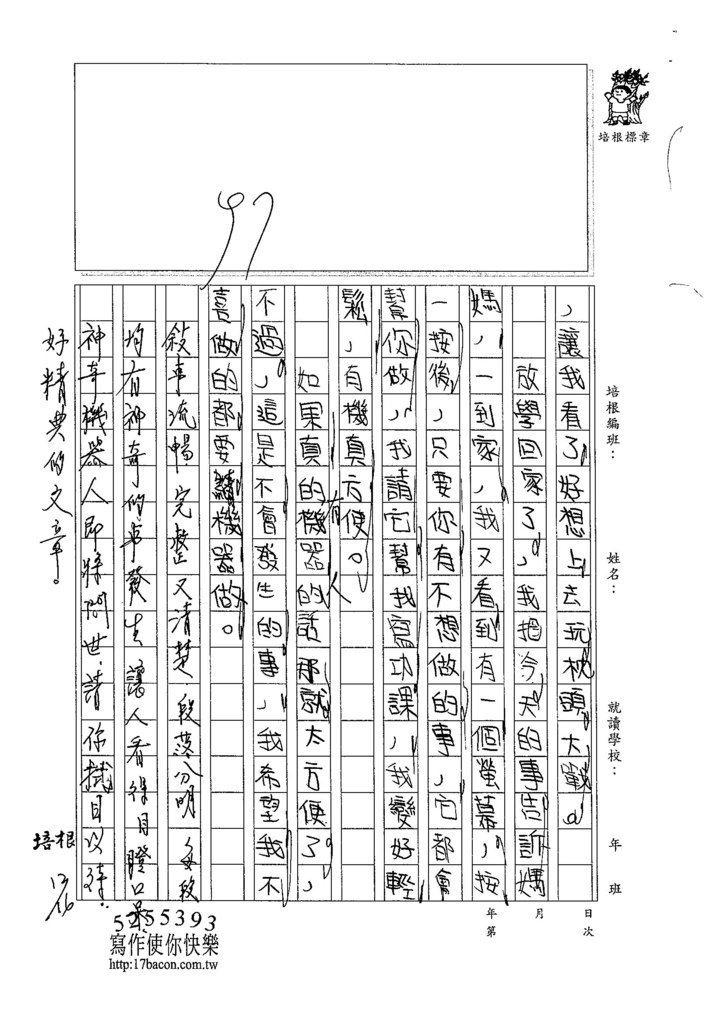 培根標章
培根編班：
姓名：
就讀學校：
年 班
年 月 日
第 次
97
，讓我看了好想上去玩枕頭大戰。
放學回家了，我把今天的事告訴媽
媽，一到家，我又看到有一個螢幕，按
一按後，只要你有不想做的事，它都會
幫你做，我請它幫我寫功課，我變好輕
鬆，有機真方便。
如果真的有機器人的話那就太方便了，
不過，這是不會發生的事，我希望我不
喜做的都要請機器做。
敘事流暢，完整又清楚，段落分明，每段
均有神奇的事發生，讓人看得目瞪口呆
神奇機器人即將問世，請你拭目以待。
好精典的文章。
培根
5255393
寫作使你快樂
http:17bacon.com.tw